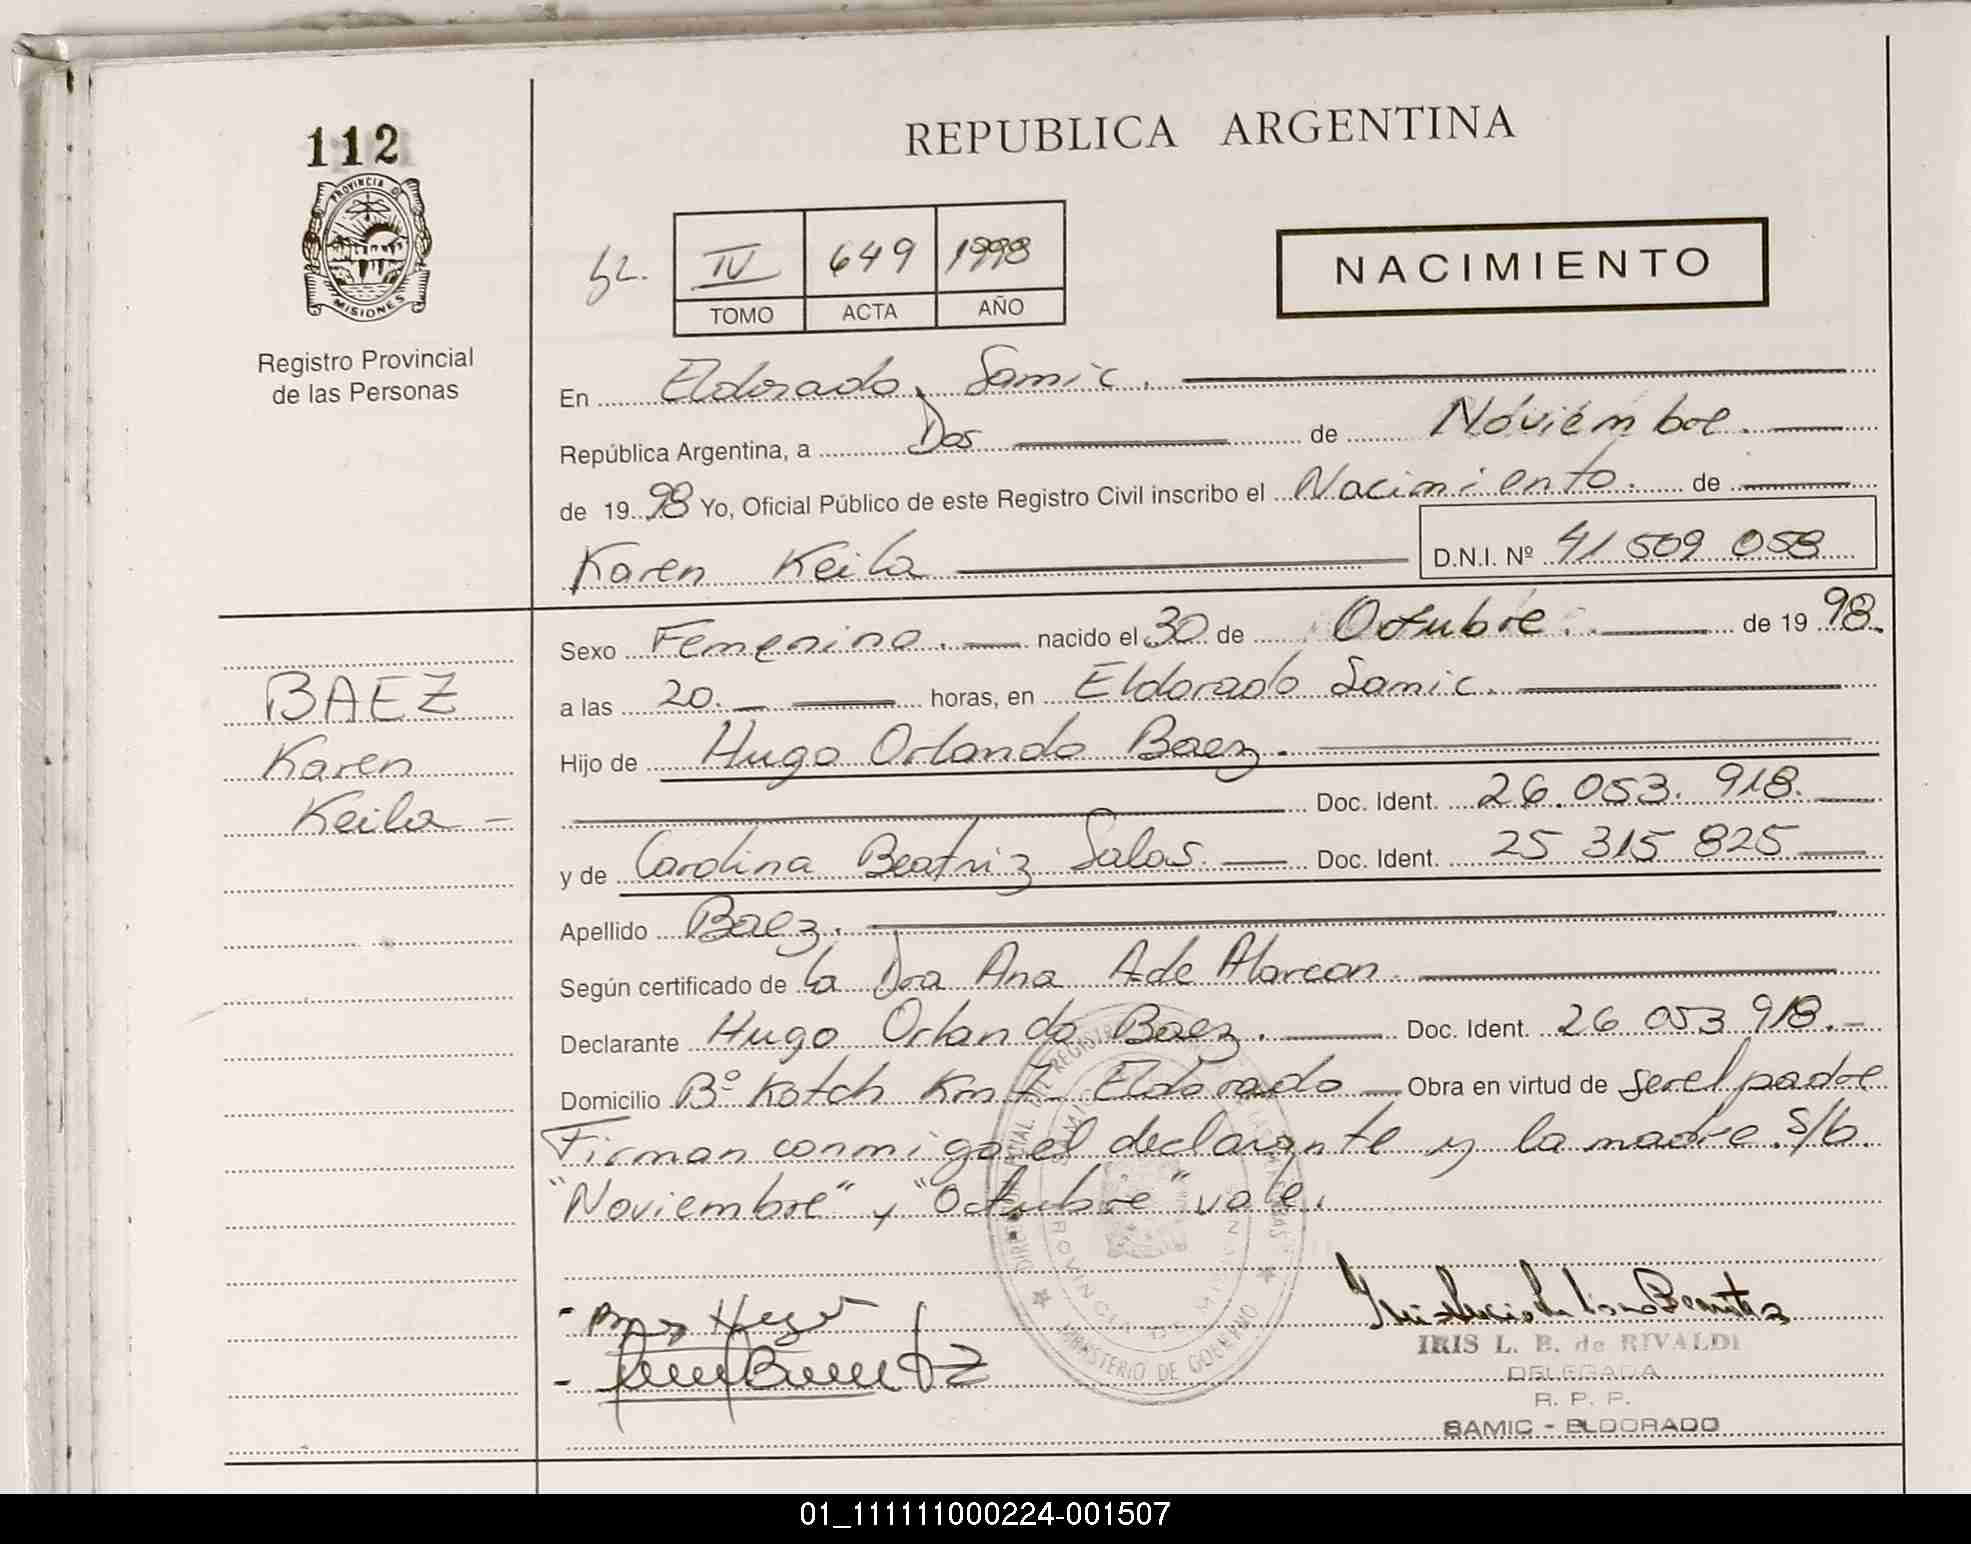 112
PROVINCIA D
MISIONES
Registro Provincial
de las Personas
REPUBLICA ARGENTINA
IV 649 1998
TOMO ACTA AÑO
NACIMIENTO
En Eldorado, Samic.
República Argentina, a Dos de Noviembre.
de 19 98 Yo, Oficial Público de este Registro Civil inscribo el Nacimiento. de
Karen Keila D.N.I. Nº 41 509 058
Sexo Femenino. nacido el 30 de Octubre. de 19 98.
a las 20. horas, en Eldorado Samic.
Hijo de Hugo Orlando Baez.
Doc. Ident. 26.053.918.
y de Carolina Beatriz Salas. Doc. Ident. 25 315 825
Apellido Baez.
Según certificado de la Dra Ana A de Alarcon.
Declarante Hugo Orlando Baez. Doc. Ident. 26 053 918.-
Domicilio Bº Kotch Km 7 Eldorado Obra en virtud de ser el padre
Firman conmigo el declarante y la madre. S/b.
"Noviembre" y "Octubre" vale.
BAEZ
Karen
Keila -
MINISTERIO DE GOBIERNO
PROVINCIA DE MISIONES
IRIS L. B. de RIVALDI
DELEGADA
R. P. P.
SAMIC - ELDORADO
01_111111000224-001507